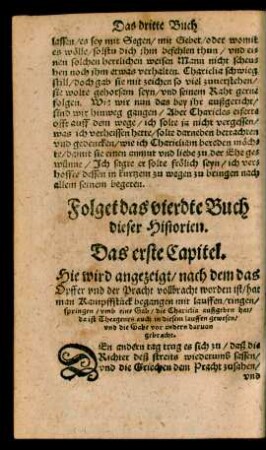 Das dritte Buch
lassen/ es sey mit Segen/ mit Gebet/ oder womit
es wölle/ solstu dich ihm befehlen thun/ vnd ei-
nen solchen herrlichen weisen Mann nicht scheu-
hen noch ihm etwas verhalten. Chariclia schwieg
still/ doch gab sie mit zeichen so viel zuuerstehen/
sie wolte gehorsam seyn/ vnd seinem Raht gerne
folgen. Wie wir nun das bey ihr außgericht/
sind wir hinweg gangen/ Aber Charicles eiferts
offt auff dem wege/ ich solte ja nicht vergessen/
was ich verheissen hette/ solte darneben betrachten
vnd gedencken/ wie ich Chariclian bereden möch-
te/ damit sie einen anmut vnd liebe zu der Ehe ge-
wünne/ Ich sagte er solte frölich seyn/ ich ver-
hoffte dessen in kurtzem zu wegen zu bringen nach
allem seinem begeren.
Folget das vierdte Buch
dieser Historien.
Das erste Capitel.
Hie wird angezeigt/ nach dem das
Opffer vnd der Pracht vollbracht worden ist/ hat
man Kampffstück begangen mit lauffen/ ringen/
springen/ vmb eine Gab/ die Chariclia außgeben hat/
da ist Theagenes auch in diesem lauffen gewesen/
vnd die Gabe vor andern daruon
gebracht.
DEn andern tag trug es sich zu/ daß die
Richter deß streits widerumb sassen/
vnd die Griechen dem Pracht zusahen/
vnd